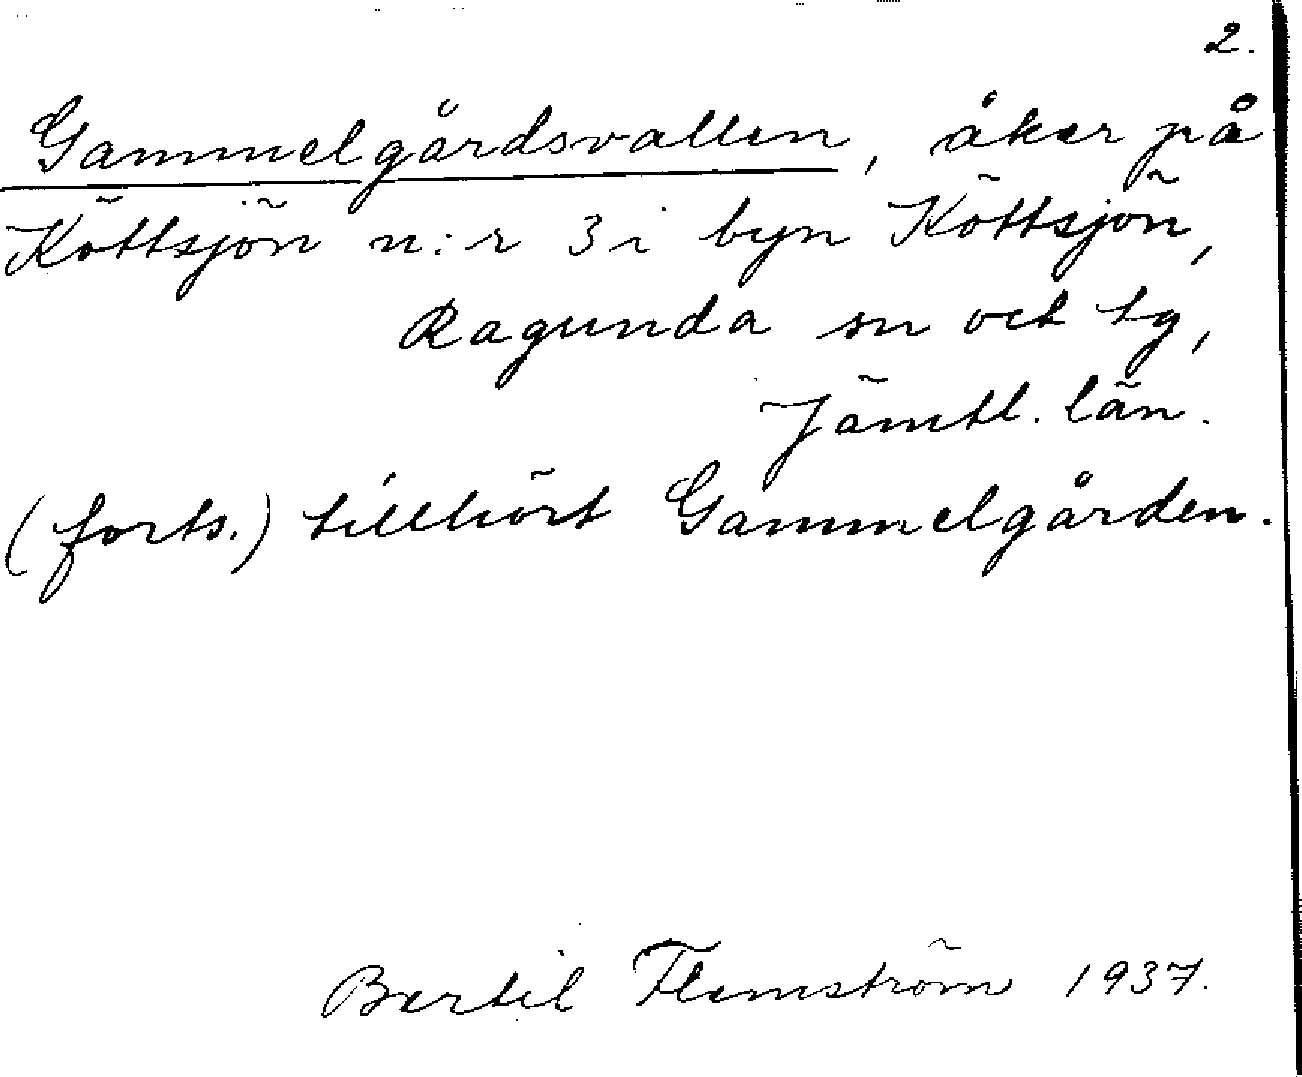 2.
Gammelgårdsvallen, åker på
Köttsjön n:r 3 i byn Köttsjön,
Ragunda sn och tg,
Jämtl. län.
(forts.) tillhört Gammelgården.
Bertil Flemström 1937.